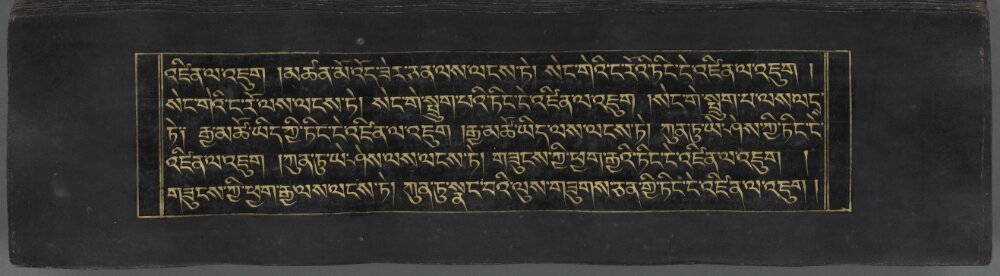 འཛིན་ལ་འཇུག །མཚན་མོ་འོད་ཟེར་ཅན་ལས་ལངས་ཏེ། སེང་གེའི་ངརོའི་ཏིང་ངེ་འཛིན་ལ་འཇུག །
སེང་གེའི་ངརོ་ལས་ལངས་ཏེ། སེང་གེ་སྤྲུག་པའི་ཏིང་ངེ་འཛིན་ལ་འཇུག །སེང་གེ་སྤྲུག་པ་ལས་ལང
ཏེ། རྒྱ་མཚོ་ཡིད་ཀྱི་ཏིང་ངེ་འཛིན་ལ་འཇུག །རྒྱ་མཚོ་ཡིད་ལས་ལངས་ཏེ། ཀུན་ཏུ་ཡེ་ཤེས་ཀྱི་ཏིང་ངེ་
འཛིན་ལ་འཇུག །ཀུན་ཏུ་ཡེ་ཤེས་ལས་ལངས་ཏེ། གཟུངས་ཀྱི་ཕྱག་རྒྱའི་ཏིང་ངེ་འཛིན་ལ་འཇུག །
གཟུངས་ཀྱི་ཕྱག་རྒྱ་ལས་ལངས་ཏེ། ཀུན་ཏུ་སྣང་བའི་ལུས་གཟུགས་ཅན་གྱི་ཏིང་ངེ་འཛིན་ལ་འཇུག །